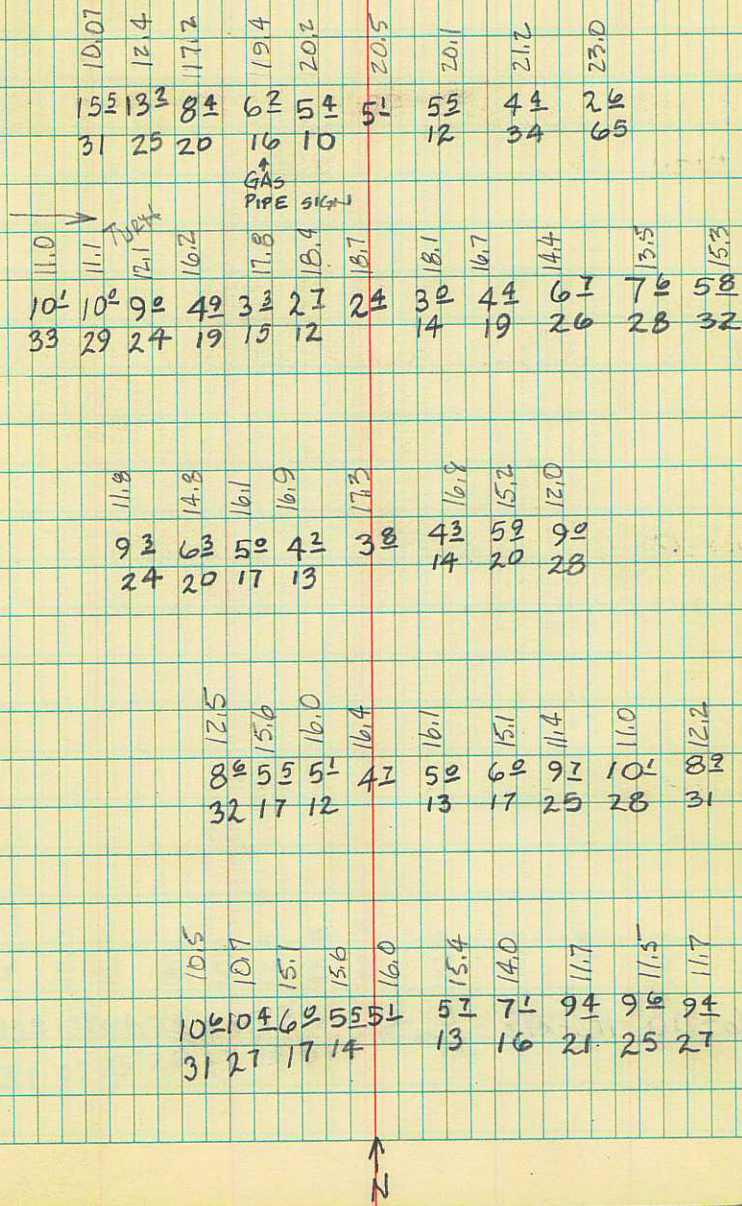 10.07 12.4 17.2 19.4 20.2 20.5 20.1 21.2 23.0
15⁵ 13² 8⁴ 6² 5⁴ 5¹ 5⁵ 4⁴ 2⁶
31 25 20 16 10 12 34 65
GAS
PIPE SIGN
TURN
11.0 11.1 12.1 16.2 17.8 18.4 18.7 18.1 16.7 14.4 13.5 15.3
10¹ 10⁰ 9⁰ 4⁹ 3³ 2⁷ 2⁴ 3⁰ 4⁴ 6⁷ 7⁶ 5⁸
33 29 24 19 15 12 14 19 26 28 32
11.8 14.8 16.1 16.9 17.3 16.8 15.2 12.0
9³ 6³ 5⁰ 4² 3⁸ 4³ 5⁹ 9⁰
24 20 17 13 14 20 28
12.5 15.6 16.0 16.4 16.1 15.1 11.4 11.0 12.2
8⁶ 5⁵ 5¹ 4⁷ 5⁰ 6⁰ 9⁷ 10¹ 8⁹
32 17 12 13 17 25 28 31
10.5 10.7 15.1 15.6 16.0 15.4 14.0 11.7 11.5 11.7
10⁶ 10⁴ 6⁰ 5⁵ 5¹ 5⁷ 7¹ 9⁴ 9⁶ 9⁴
31 27 17 14 13 16 21 25 27
N